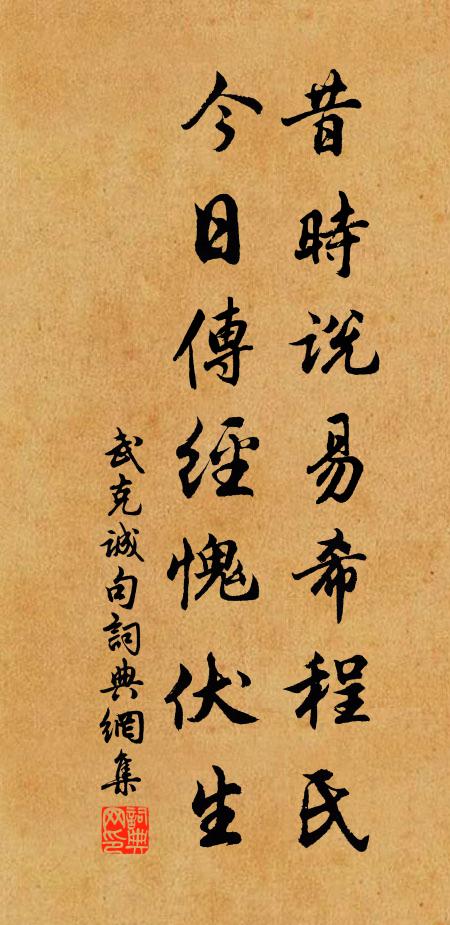 昔時說易希程氏
今日傳經愧伏生
武克诚句詞典網集
詞典网印